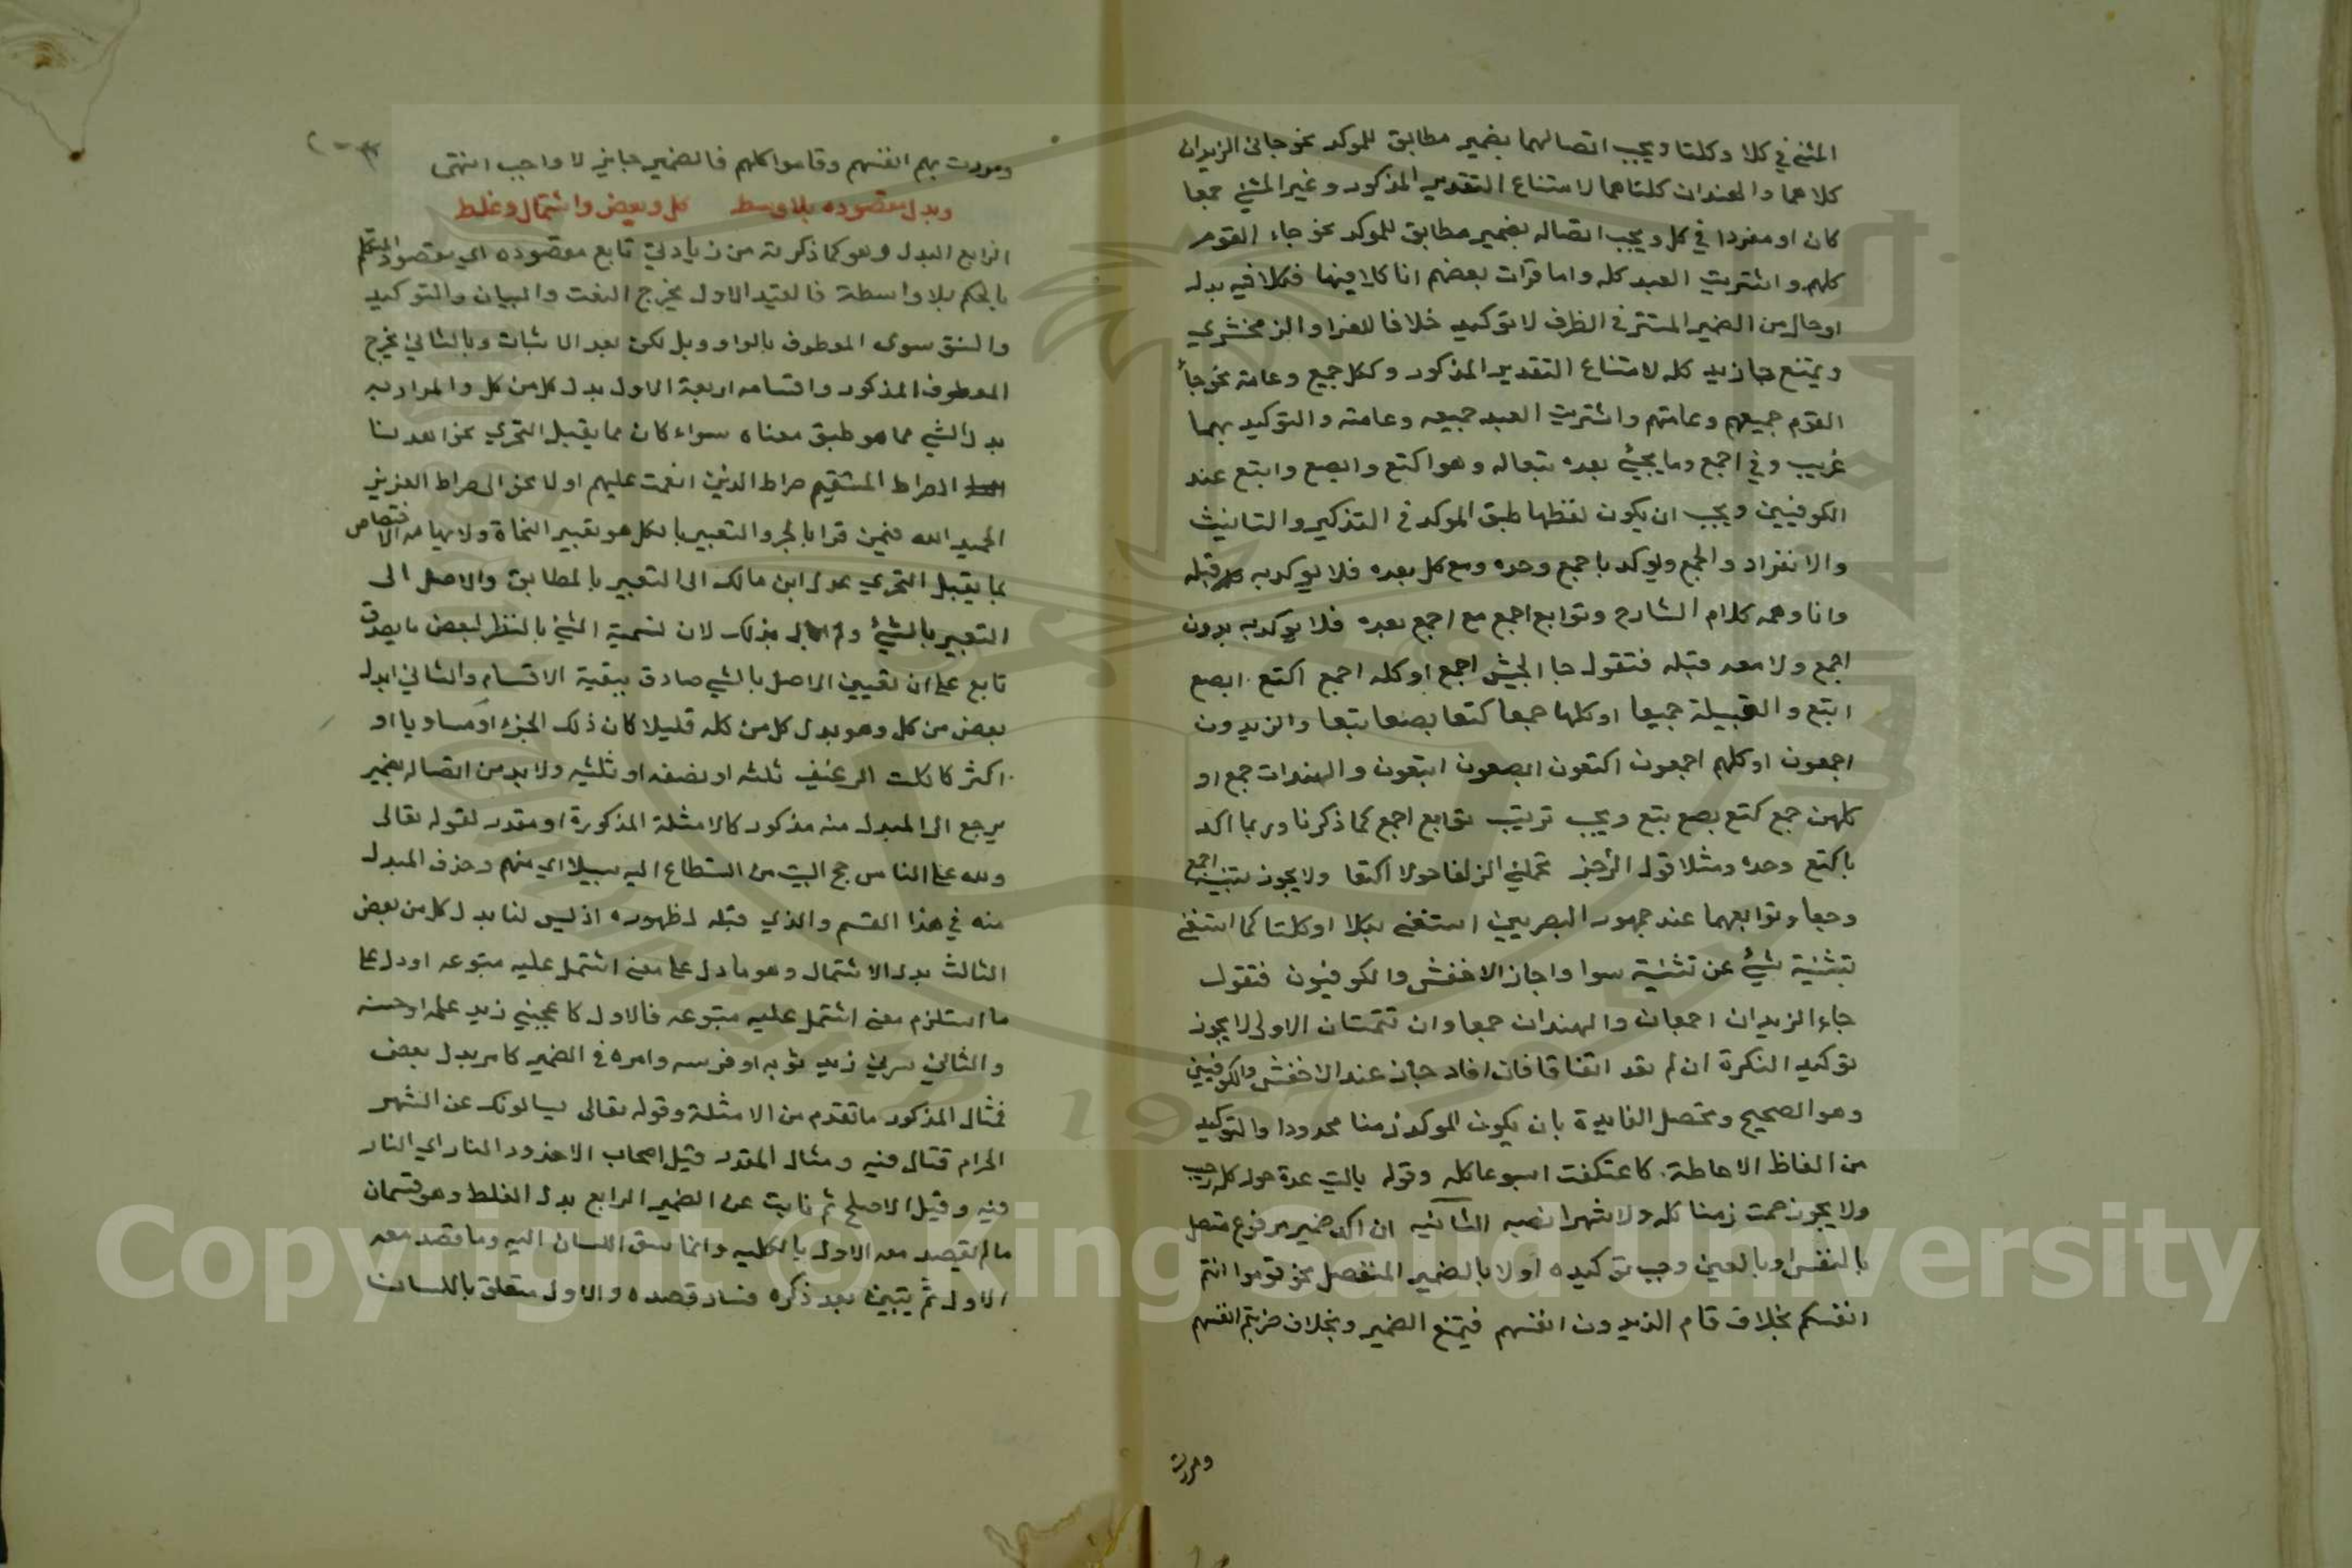 المثنى في كلا وكلتا ويجب اتصالهما بضمير مطابق للموكد نحو جاني الزيدان
كلاهما والهندان كلتاهما لامتناع التقدير المذكور وغير المثنى جمعا
كان او مفردا في كل ويجب اتصاله بضمير مطابق للموكد نحو جاء القوم
كلهم واشتريت العبد كله واما قرات بعضهم انا كلا فيها فكلا فيه بدل
او حال من الضمير المستتر في الظرف لا توكيد خلافا للفرا والزمخشري
ويمتنع جا زيد كله لامتناع التقدير المذكور وككل جميع وعامة نحو جأ
القوم جميعهم وعامتهم واشتريت العبد جميعه وعامته والتوكيد بهما
غريب وفي اجمع وما يجئ بعده تبعا له وهو اكتع وابصع وابتع عند
الكوفيين ويجب ان يكون لفظها طبق الموكد في التذكير والتانيث
والانفراد والجمع ويوكد باجمع وحده ومع كل بعده فلا يوكد به قبله
وانا وهمه كلام الشارح وتوابع اجمع مع اجمع بعده فلا يوكد به بدون
اجمع ولا معه قبله فتقول جا الجيش اجمع او كله اجمع اكتع ابصع
ابتع والقبيلة جميعا او كلها جمعا كتعا بصعا بتعا والزيدون
اجمعون او كلهم اجمعون اكتعون ابصعون ابتعون والهندات جمع او
كلهن جمع كتع بصع بتع ويجب ترتيب توابع اجمع كما ذكرنا وربما اكد
باكتع وحده ومثلا قول الرٰجز تحملني الزلفا حولا اكتعا ولا يجوز تثنية اجمع
وجمعا وتوابعهما عند جمهور البصريين استغنى بكلا او كلتا كما استغنى
بتثنية شئ عن تثنية سوا واجاز الاخفش والكوفيون فتقول
جاء الزيدان اجمعان والهندان جمعاوان تتمتان الاولى لا يجوز
توكيد النكرة ان لم تفد اتفاقا فان افاد جاز عند الاخفش والكوفيين
وهو الصحيح وتحصل الفايدة بان يكون الموكد زمنا محدودا والتوكيد
من الفاظ الاحاطة كاعتكفت اسبوعا كله وقوله ياليت عدة حول كله رجب
ولا يجوز صمت زمنا كله ولا شهرا نفسه الثانيه ان اكد ضمير مرفوع متصل
بالنفس او بالعين وجب توكيده اولا بالضمير المنفصل نحو قوموا انتم
انفسكم بخلاف قام الزيدون انفسهم فيمتنع الضمير وبخلاف ضربتهم انفسهم
ومررت
ومررت بهم انفسهم وقاموا كلهم فالضمير جايز لا واجب انتهى
وبدل مقصوده بلا وسط كل وبعض واشتمال وغلط
الرابع البدل وهو كما ذكرته من زيادتي تابع مقصوده اي مقصود المتكلم
بالحكم بلا واسطة فالقيد الاول يخرج النعت والبيان والتوكيد
والنسق سوى المعطوف بالواو وبل لكن بعد الاثبات وبالثاني يخرج
المعطوف المذكور واقسامه اربعة الاول بدل كل من كل والمراد به
بدل الشي مما هو طبق معناه سواء كان مما يقبل التجزي نحو اهدنا
الصراط المستقيم صراط الذين انعمت عليهم او لا نحو الى صراط العزيز
الحميد الله فيمن قرا بالجر والتعبير بالكل هو تعبير النحاة ولايهامه الاختصاص
بما يقبل التجزي عدل ابن مالك الى التعبير بالمطابق والاصل الى
التعبير بالشئ ولم ابال بذلك لان تسمية الشئ بالنظر لبعض ما يصدق
تابع على ان تعيين الاصل بالشي صادق ببقية الاقسام والثاني ابدل
بعض من كل وهو بدل كل من كله قليلا كان ذلك الجزء او مساويا او
اكثر كاكلت الرغيف ثلثه او نصفه او ثلثيه ولا بد من اتصاله بضمير
يرجع الى المبدل منه مذكور كالامثلة المذكورة او مقدر لقوله تعالى
ولله على الناس حج البيت من استطاع اليه سبيلا اي منهم وحذف المبدل
منه في هذا القسم والذي قبله لظهوره اذ ليس لنا بدل كل من بعض
الثالث بدل الاشتمال وهو ما دل على معنى اشتمل عليه متبوعه او دل على
ما استلزم معنى اشتمل عليه متبوعه فالاول كاعجبني زيد علمه او حسنه
والثاني سرني زيد ثوبه او فرسه وامره في الضمير كامر بدل بعض
فمثال المذكور ما تقدم من الامثلة وقوله تعالى يسالونك عن الشهر
الحرام قتال فيه ومثال المقدر قتل اصحاب الاخدود النار اي النار
فيه وقيل الاصل ثم نابت عن الضمير الرابع بدل الغلط وهو قسمان
ما لم يقصد معه الاول بالكليه وانما سبق اللسان اليه وما قصد معه
الاول ثم يتبين بعد ذكره فساد قصده والاول متعلق باللسان
Copyright © King Saud University
1957